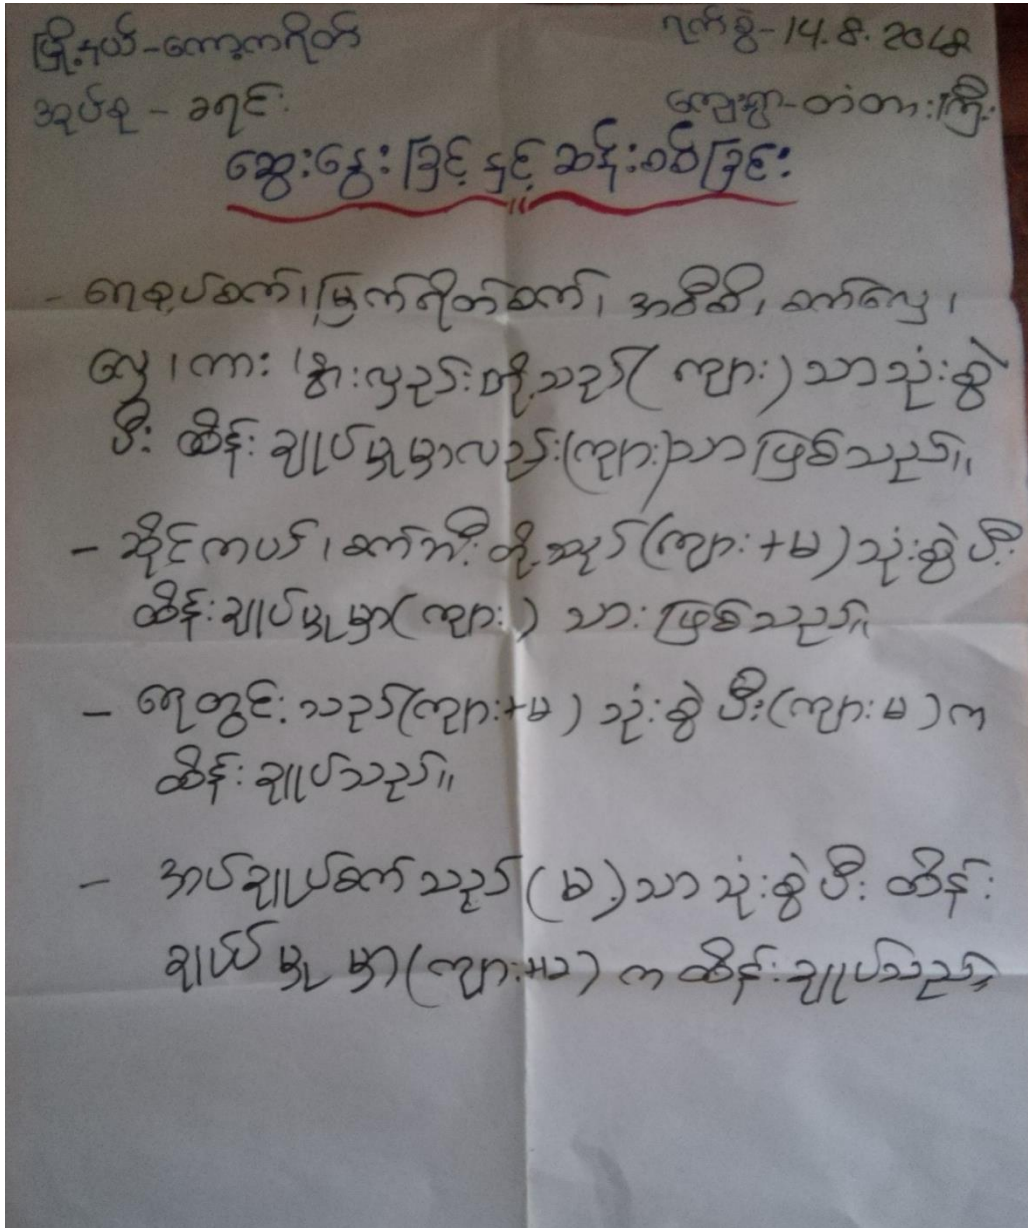 မြို့နယ်-ကော့ကရိတ် ရက်စွဲ-14.8.2018
အုပ်စု - ခရင်း ကျေးရွာ-တံတားကြီး
ဆွေးနွေးခြင့်နှင့်ဆန်းစစ်ခြင်း
- ရေစုပ်စက်၊ မြက်ရိတ်စက်၊ အဝီစိ၊ စက်လှေ၊
လှေ၊ ကား၊ နွားလှည်းတို့သည် (ကျား) သာသုံးစွဲ
ပီး ထိန်းချုပ်မှုမှာလည်း(ကျား)သာဖြစ်သည်။
- ဆိုင်ကယ်၊ စက်ဘီးတို့သည် (ကျား+မ) သုံးစွဲပီး
ထိန်းချုပ်မှုမှာ (ကျား) သားဖြစ်သည်။
- ရေတွင်းသည် (ကျား+မ) သုံးစွဲပီး (ကျားမ) က
ထိန်းချုပ်သည်။
- အပ်ချုပ်စက်သည် (မ) သာသုံးစွဲပီး ထိန်း
ချုပ်မှုမှာ (ကျား+မ) က ထိန်းချုပ်သည်။